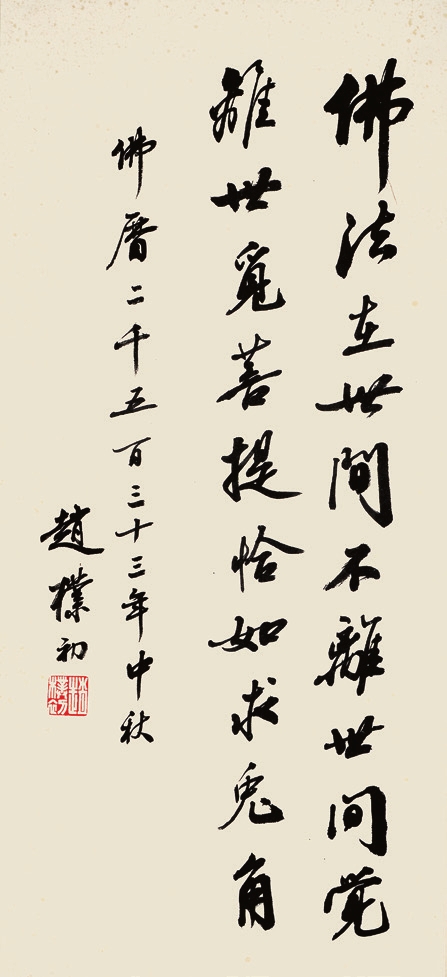 佛法在世間不離世间覺
離世覓菩提恰如求兎角
佛曆二千五百三十三年中秋
趙樸初
趙樸初